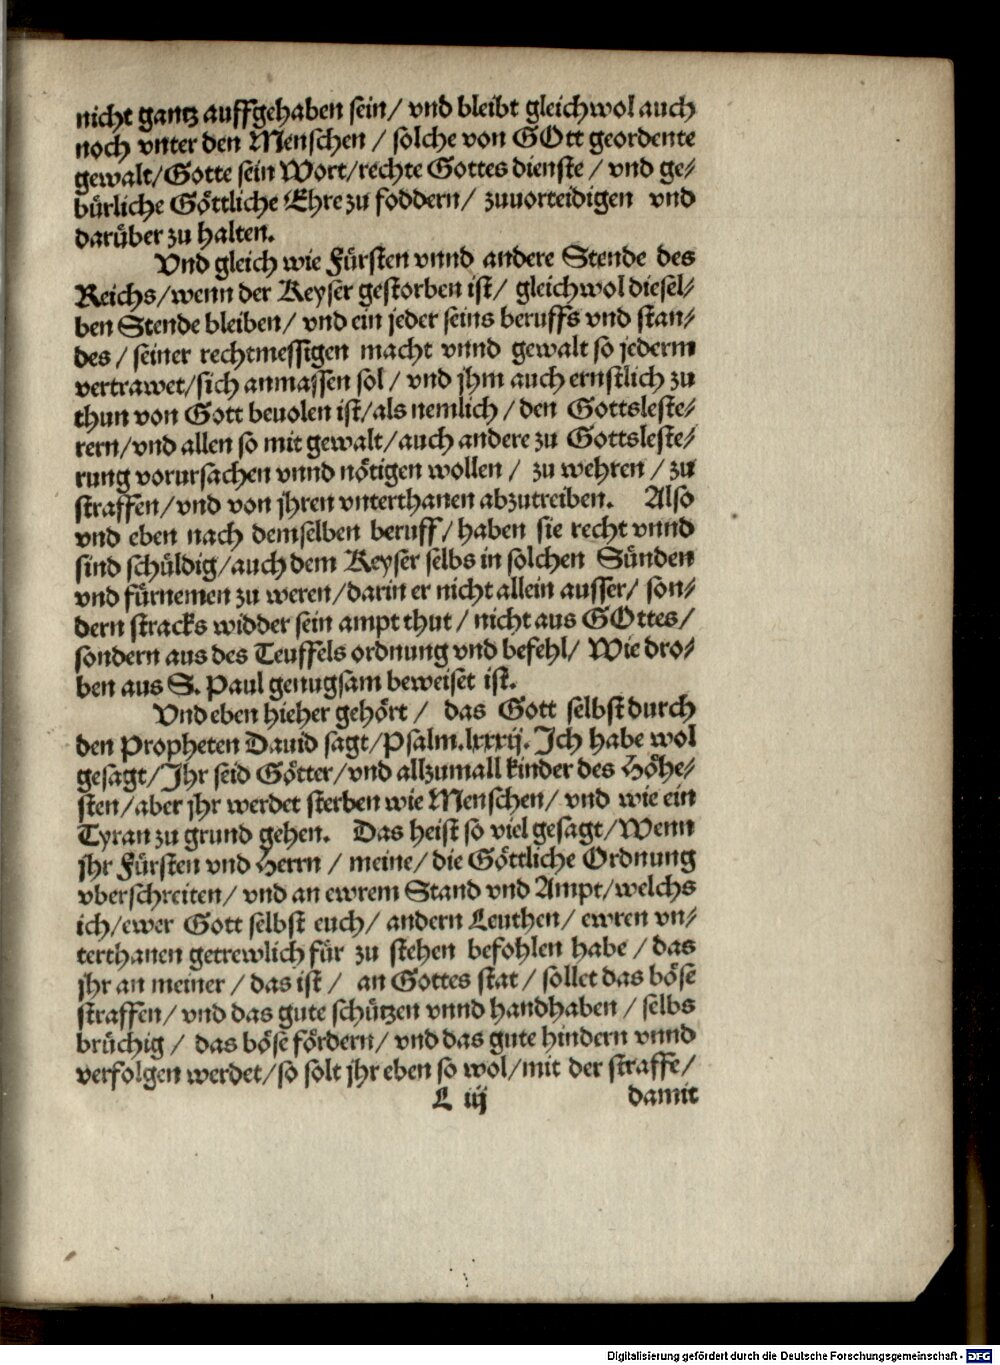 nicht gantz auffgehaben sein/ vnd bleibt gleichwol auch
noch vnter den Menschen / solche von GOtt geordente
gewalt/Gotte sein Wort/rechte Gottes dienste / vnd ge⸗
bürliche Göttliche Ehre zu foddern/ zuuorteidigen vnd
darüber zu halten.
Vnd gleich wie Fürsten vnnd andere Stende des
Reichs/wenn der Keyser gestorben ist/ gleichwol diesel⸗
ben Stende bleiben/ vnd ein jeder seins beruffs vnd stan⸗
des / seiner rechtmessigen macht vnnd gewalt so jederm
vertrawet/sich anmassen sol / vnd jhm auch ernstlich zu
thun von Gott beuolen ist/als nemlich / den Gottsleste⸗
rern/vnd allen so mit gewalt/auch andere zu Gottsleste⸗
rung vorursachen vnnd nötigen wollen / zu wehren / zu
straffen/vnd von jhren vnterthanen abzutreiben. Also
vnd eben nach demselben beruff/ haben sie recht vnnd
sind schüldig/auch dem Keyser selbs in solchen Sünden
vnd fürnemen zu weren/darin er nicht allein ausser/ son⸗
dern stracks widder sein ampt thut / nicht aus GOttes/
sondern aus des Teuffels ordnung vnd befehl/ Wie dro⸗
ben aus S. Paul genugsam beweiset ist.
Vnd eben hieher gehört / das Gott selbst durch
den Propheten Dauid sagt/Psalm.lxxxij. Ich habe wol
gesagt/Jhr seid Götter/vnd allzumall kinder des Höhe⸗
sten/aber jhr werdet sterben wie Menschen/ vnd wie ein
Tyran zu grund gehen. Das heist so viel gesagt/Wenn
jhr Fürsten vnd Herrn / meine/ die Göttliche Ordnung
vberschreiten/ vnd an ewrem Stand vnd Ampt/welchs
ich/ewer Gott selbst euch/ andern Leuthen/ ewren vn⸗
terthanen getrewlich für zu stehen befohlen habe / das
jhr an meiner / das ist / an Gottes stat / sollet das böse
straffen/ vnd das gute schützen vnnd handhaben / selbs
brüchig / das böse fördern/ vnd das gute hindern vnnd
verfolgen werdet/so solt jhr eben so wol/mit der straffe/
L iij damit
Digitalisierung gefördert durch die Deutsche Forschungsgemeinschaft - DFG